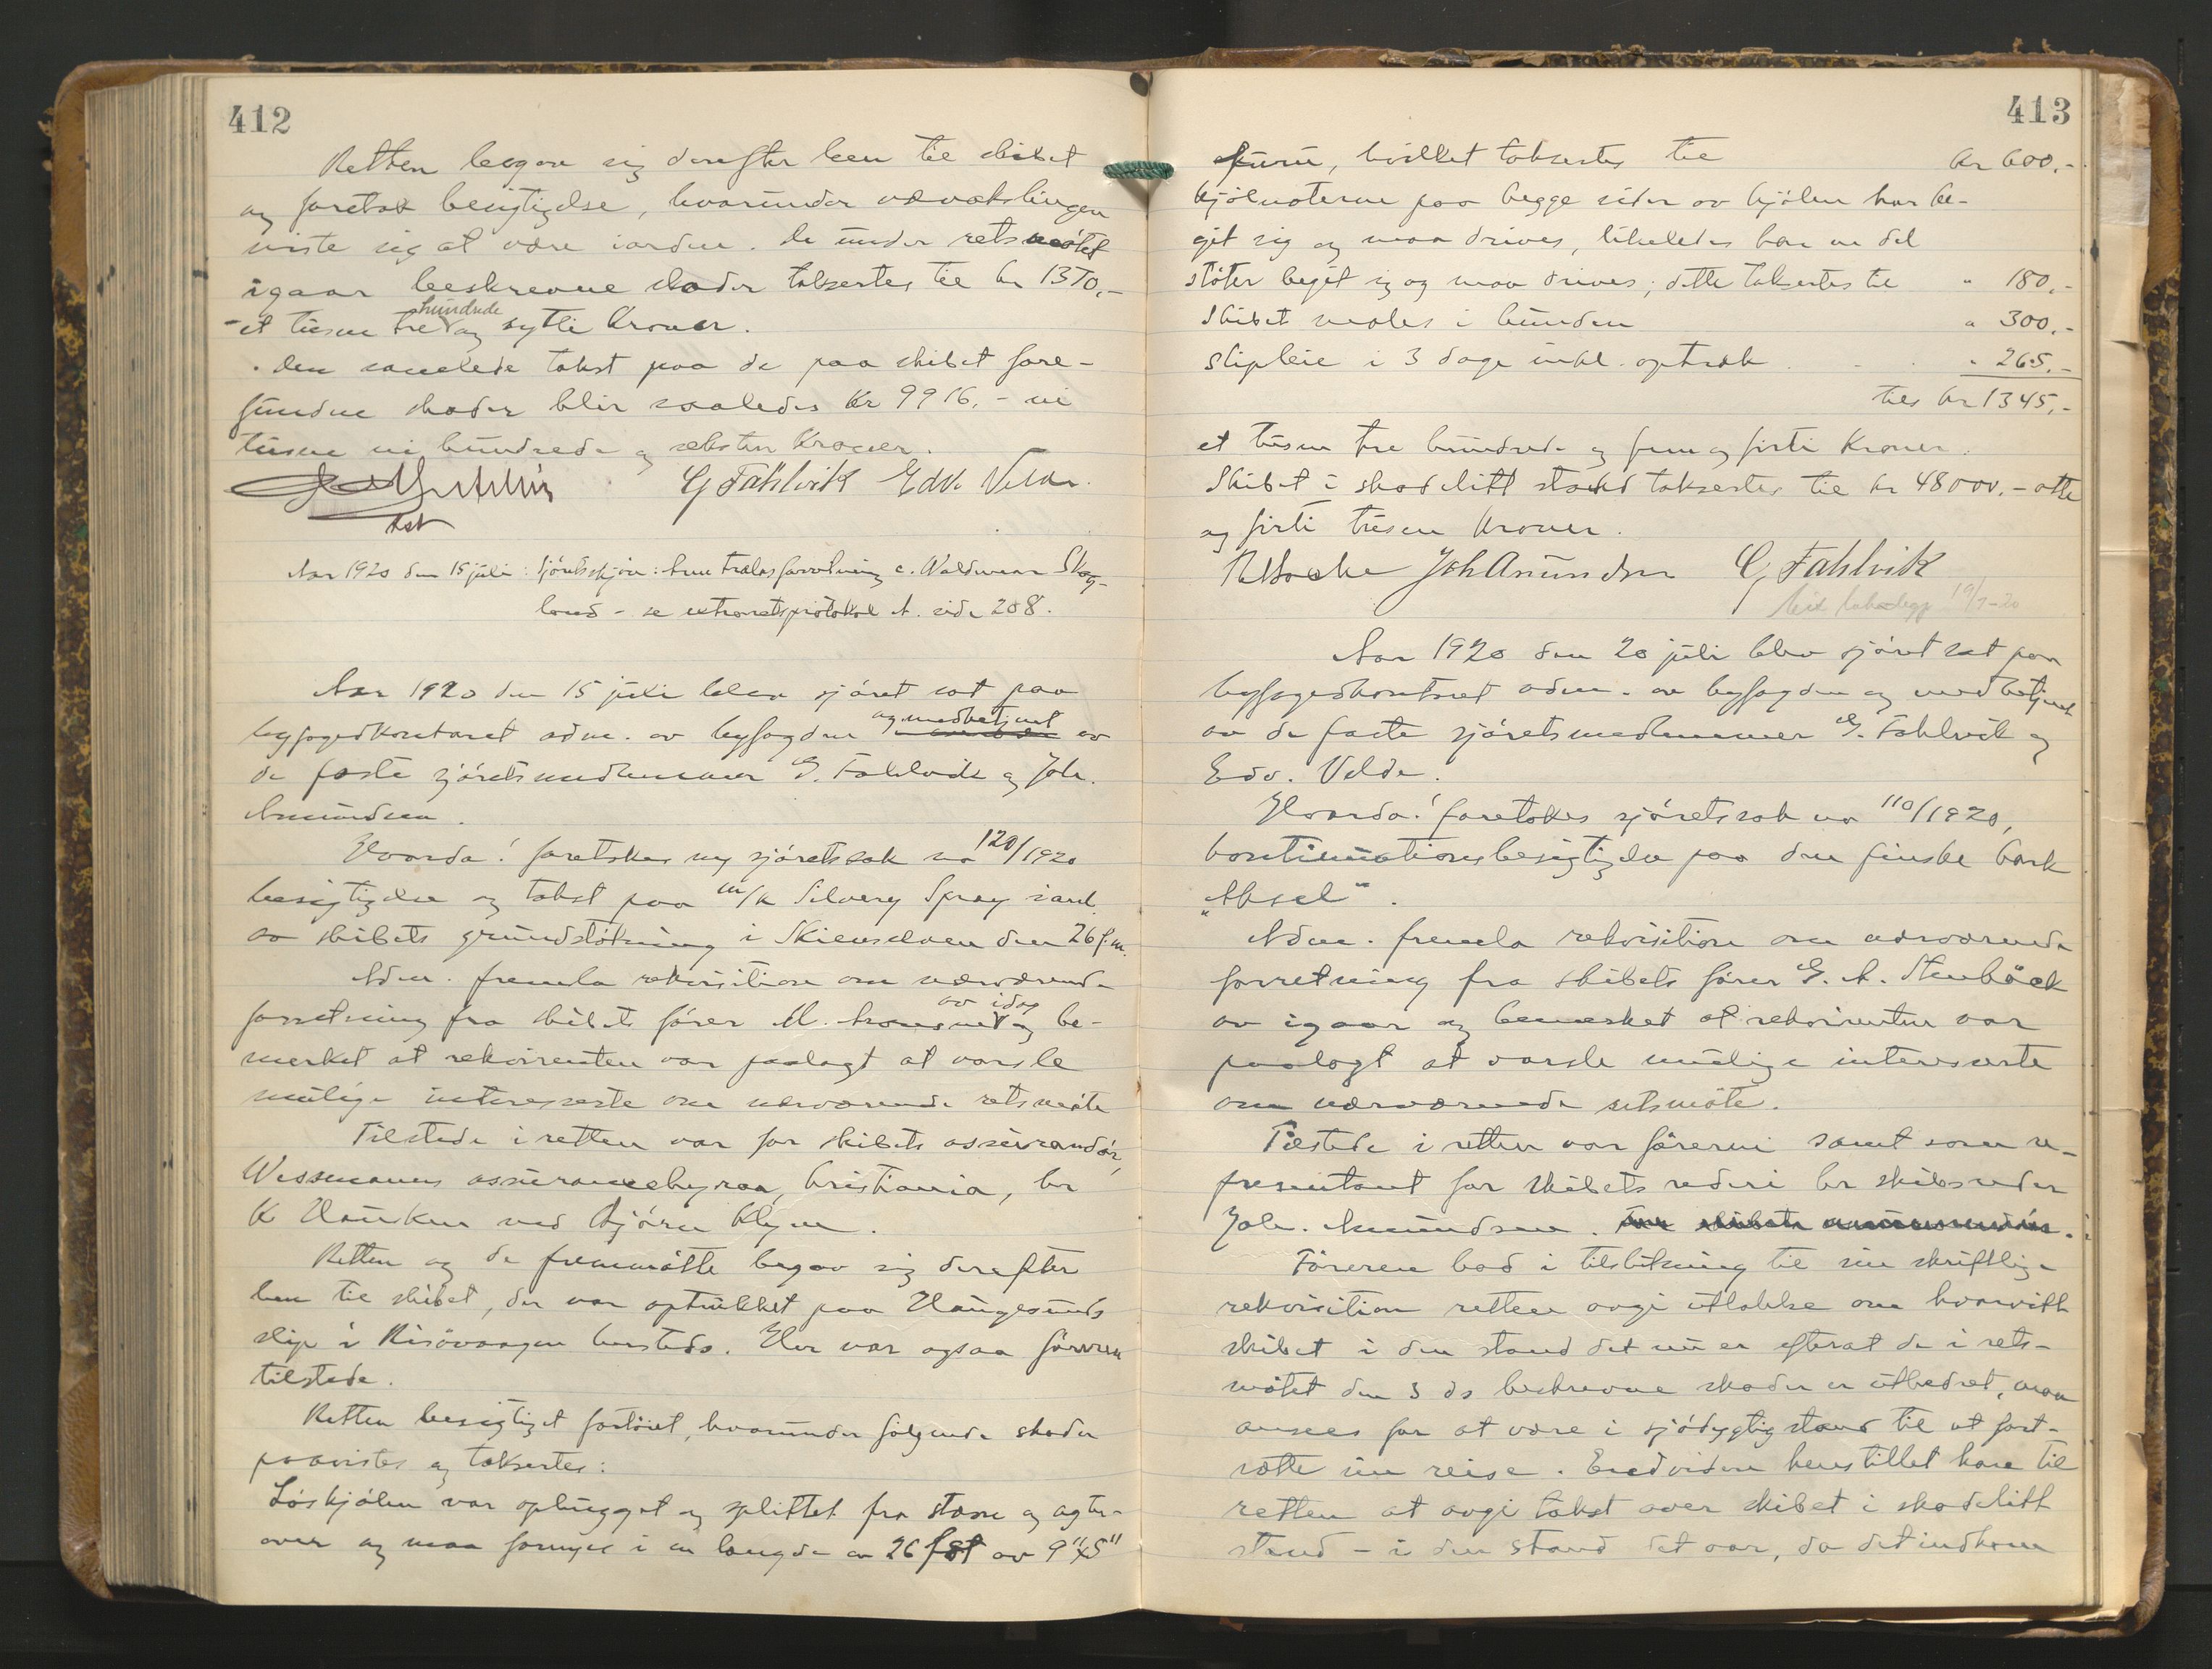 412
Retten begav sig derefter hen til skibet
og foretok besigtigelse, hvorunder utvekslingen
viste sig at være iorden. De under retsmötet
igaar beskrevne skader takseres til kr 1370,-
- et tusen tre hundrede og sytti kroner.
Den samlede takst paa de paa skibet fore-
fundne skader blir saaledes kr 9916,- ni
tusen ni hundrede og seksten kroner.
G Fahlvik Edv. Velde.
Aar 1920 den 15 juli: Sjöretsskjön: Anne Trælas forretning c. Waldemar Skog-
land - se extraretsprotokol A. side 208.
Aar 1920 den 15 juli blev sjöret sat paa
byfogedkontoret adm. av byfogden og medbetjent av
de faste sjöretsmedlemmer G. Fahlvik og Joh.
Amundsen.
Hvorda! foretokes ny sjöretssak no 120/1920
besigtigelse og takst paa m/k Silvery Spray i anl.
av skibets grundstötning i Skienselven den 26 f.m.
Adm. fremla rekvisition om nærværende
forretning fra skibets förer M. av idag og be-
merket at rekvirenten var paalagt at varsle
mulige interesserte om nærværende retsmöte
Tilstede i retten var for skibets assurandör,
Wessmanns assurancebyraa, Kristiania, hr
K Hauken ved Björn Klyve.
Retten og de fremmötte begav sig derefter
hen til skibet, der var optrukket paa Haugesunds
slip i Risövaagen hersteds. Her var ogsaa föreren
tilstede.
Retten besigtiget fartöiet, hvorunder fölgende skader
paavistes og takseres:
Löskjölen var ophugget og splittet fra stevn og agter-
over og maa fornyes i en længde av 26 fot av 9"x5"
413
furu, hvilket takseres til kr 600.-
Kjölnaterne paa begge sider av kjölen har be-
git sig og maa drives, likeledes har en del
stöter begit sig og maa drives; dette takseres til " 180.-
Skibet males i bunden " 300.-
Slipleie i 3 dage inkl. optræk " 265.-
tils kr 1345,-
et tusen tre hundrede og fem og firti kroner.
Skibet i skadelitt stand takseres til kr 48000.- otte
og firti tusen kroner.
Joh Amundsen G. Fahlvik
19/7-20
Aar 1920 den 20 juli blev sjöret sat paa
byfogedkontoret adm. av byfogden og medbetjent
av de faste sjöretsmedlemmer G. Fahlvik og
Edv. Velde.
Hvorda! foretokes sjöretssak no 110/1920,
kontinuationsbesigtigelse paa den finske bark
"Aksel".
Adm. fremla rekvisition om nærværende
forretning fra skibets förer G. A. Stenbäck
av igaar og bemerket at rekvirenten var
paalagt at varsle mulige interesserte
om nærværende retsmöte.
Tilstede i retten var föreren samt som re-
presentant for skibets rederi hr skibsreder
Joh. Amundsen.
Föreren bad i tilslutning til sin skriftlige
rekvisition retten avgi uttalelse om hvorvidt
skibet i den stand det nu er efterat de i rets-
mötet den 3 ds beskrevne skader er utbedret, maa
ansees for at være i sjödygtig stand til at fort-
sætte sin reise. Endvidere henstillet han til
retten at avgi takst over skibet i skadelitt
stand - i den stand det var, da det indkom